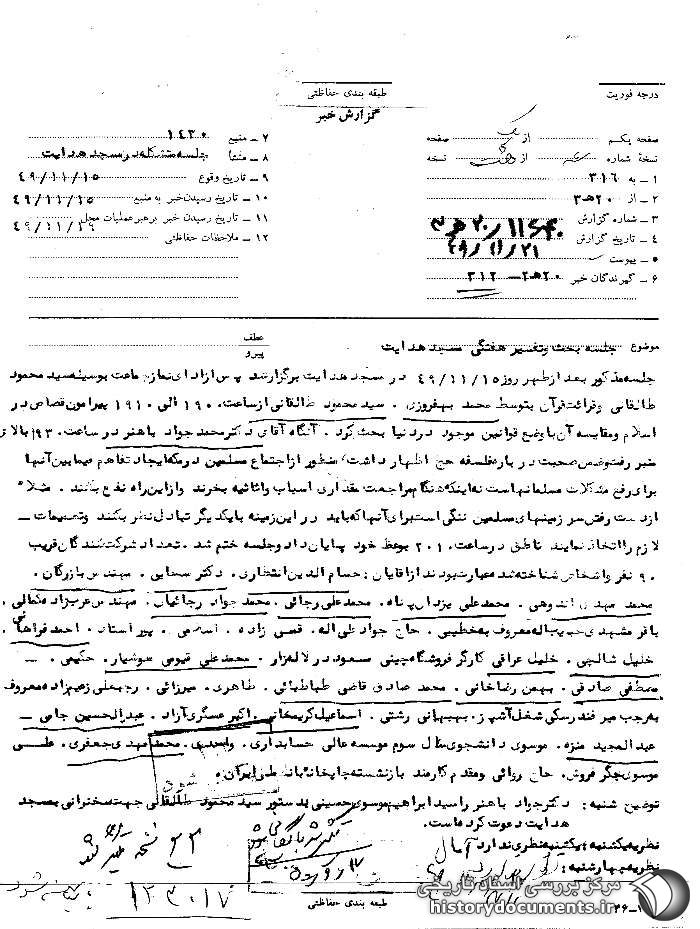 درجه فوریت
طبقه بندی حفاظتی
گزارش خبر
صفحه یکم از یک صفحه
نسخهٔ شماره از نسخه
۱ ــ به ۳۱۶
۲ ــ از ۲۰هـ۳
۳ ــ شماره گزارش ۲۰/۱۱۶۴۰هـ۳
۴ ــ تاریخ گزارش ۴۹/۱۱/۲۱
۵ ــ پیوست
۶ ــ گیرندگان خبر ۲۰هـ۲ــ ۳۱۲
۷ ــ منبع ۱۴۳۰
۸ ــ منشأ جلسه متشکله در مسجد هدایت
۹ ــ تاریخ وقوع ۴۹/۱۱/۱۵
۱۰ ــ تاریخ رسیدن خبر به منبع ۴۹/۱۱/۱۵
۱۱ ــ تاریخ رسیدن خبر برهبر عملیات محل ۴۹/۱۱/۱۹
۱۲ ــ ملاحظات حفاظتی
موضوع جلسه بحث وتفسیر هفتگی مسجد هدایت
عطف
پیرو
جلسه مذکور بعد از ظهر روز ۴۹/۱۱/۱۵ در مسجد هدایت برگزار شد پس از ادای نماز جماعت بوسیله سید محمود
طالقانی وقرائت قرآن بتوسط محمد بهفروزی . سید محمود طالقانی از ساعت ۱۹۰۰ الی ۱۹۱۰ پیرامون قصاص در
اسلام ومقایسه آن با وضع قوانین موجود در دنیا بحث کرد . آنگاه آقای دکتر محمد جواد باهنر در ساعت ۱۹۳۰ بالای
منبر رفت وضمن صحبت در باره فلسفه حج اظهار داشت منظور از اجتماع مسلمین در مکه ایجاد تفاهم فیمابین آنها
برای رفع مشکلات مسلمانهاست نه اینکه هنگام مراجعت مقداری اسباب واثاثیه بخرند وازاین راه نفع ببرند . مثلاً
ازدست رفتن سرزمینهای مسلمین ننگی است برای آنها که باید در این زمینه با یکدیگر تبادل نظر بکنند وتصمیمات ــ
لازم را اتخاذ نمایند ناطق در ساعت ۲۰۱۰ بوعظ خود پایان داد وجلسه ختم شد . تعداد شرکت کنندگان قریب
۹۰ نفر واشخاص شناخته شده عبارت بودند از آقایان : حسام الدین انتظاری . دکتر سحابی . مهندس بازرگان .
محمد مهدی اندوهی . محمد علی یزدان پناه . محمد علی رجائی . محمد جواد رجائیان . مهندس عربزاده خلخالی .
باقر مشهدی حبیب اله معروف به خطیبی . حاج جواد ظل اله . قصی زاده . اسلامی . پیر استاد . احمد فراهانی
خلیل شالچی . خلیل عراقی کارگر فروشگاه چینی مسعود در لاله زار . محمد علی قیومی سوشیار . حکیمی . ــ
مصطفی صادقی . بهمن رضاخانی . محمد صادق قاضی طباطبائی . طاهری . میرزائی . رجبعلی زعیم زاده معروف
به رجب میرفندرسکی شغل آشپز . بهبهانی رشتی . اسماعیل کریمخانی . اکبر عسگری آزاد . عبدالحسین جامی ــ
عبدالمجید منزه . موسوی دانشجوی سال سوم موسسه عالی حسابداری . واحدی . محمد مهدی جعفری . علی
موسوی جگر فروش . حاج روائی ومقدم کارمند بازنشسته چاپخانه بانک ملی ایران .
توضیح شنبه : دکتر جواد باهنر را سید ابراهیم موسوی حسینی بدستور سید محمود طالقانی جهت سخنرانی به مسجد
هدایت دعوت کرده است .
نظریه یکشنبه : یکشنبه نظری ندارد آمال
نظریه چهارشنبه :
۲۳ نسخه تکثیر شد
۱۲۳۰۱۷
طبقه بندی حفاظتی
مرکز بررسی اسناد تاریخی
historydocuments.ir